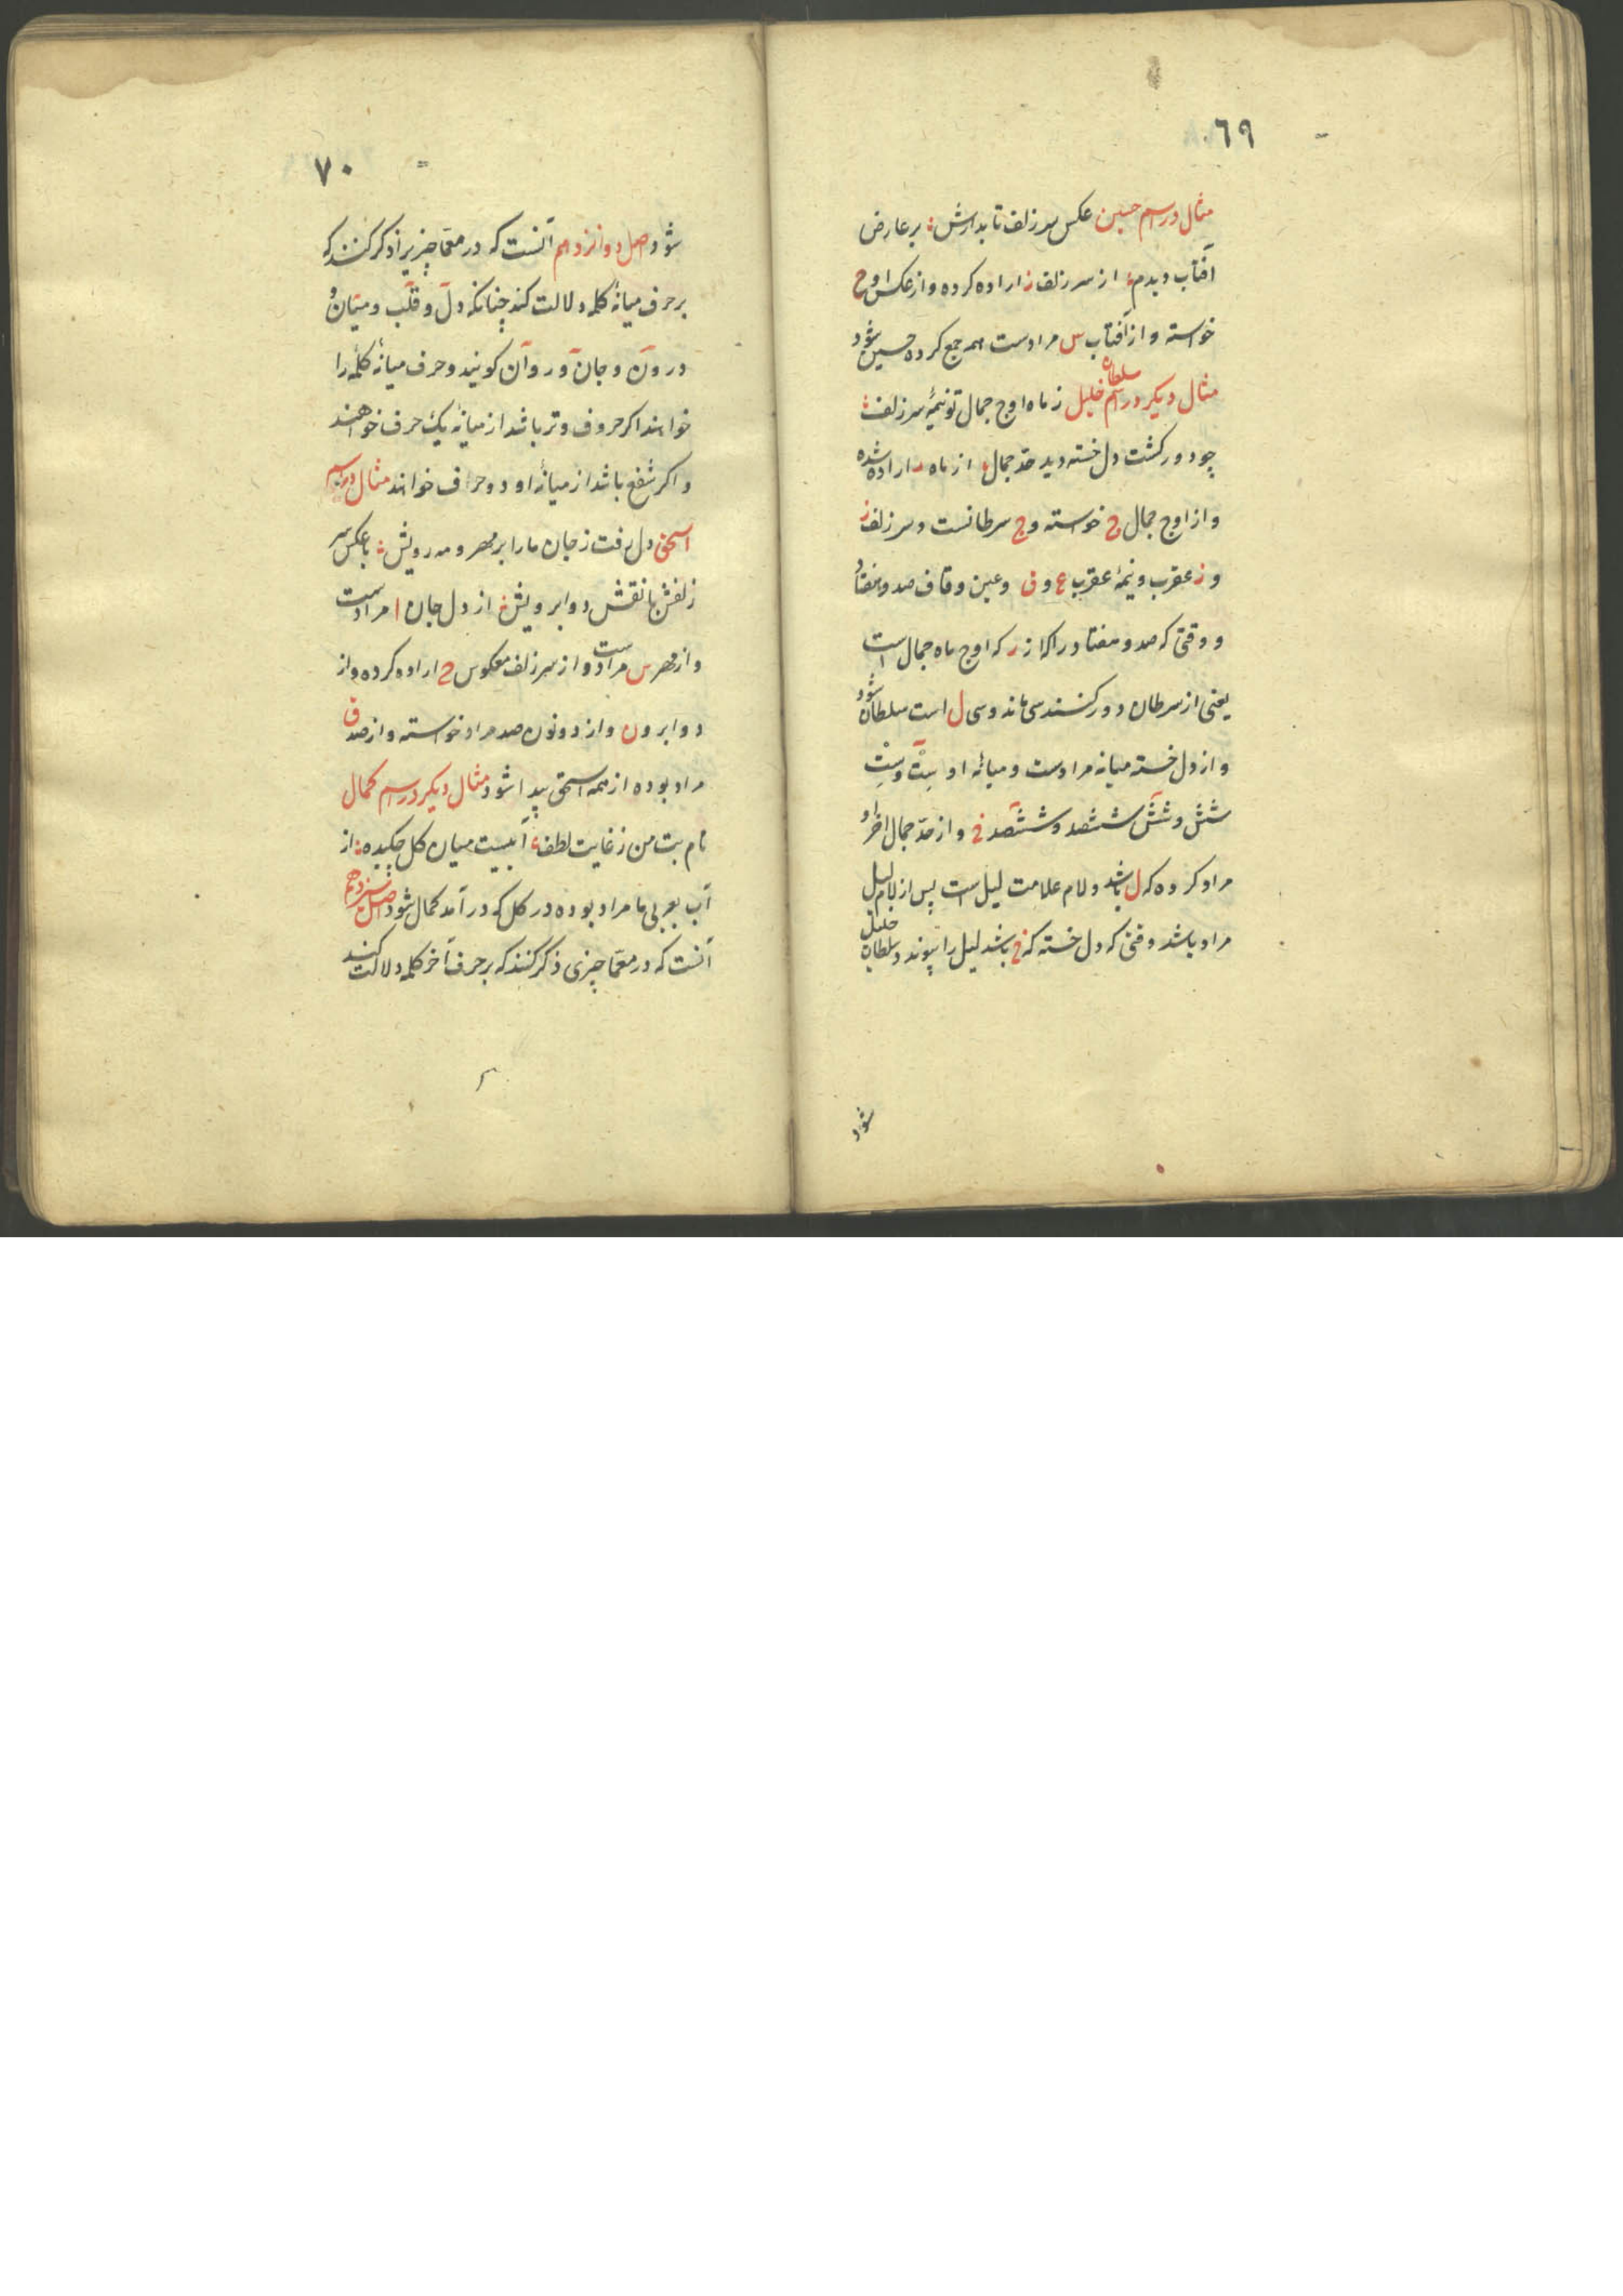 ٦٩
مثال در اسم حسین عکس سر زلف تابدارش بر عارض
آفتاب دیدم از سر زلف ز اراده کرده و از عکس او ح
خواسته و از آفتاب س مرادست همه جمع کرده حسین شود
مثال دیکر در اسم سلطان خلیل ز ماه اوج جمال تو نیمهٔ سر زلف
چو دور کشت دل خسته دید حدّ جمال از ماه ر اراده شده
و از اوج جمال ج خواسته و ج سرطانست و سر زلف ز
و ز عقرب و نیمهٔ عقرب ع و ق و عین و قاف صد و هفتاد
و وقتی که صد و هفتاد را که از ر که اوج ماه جمال است
یعنی از سرطان دور کنند سی ماند و سی ل است سلطان شود
و از دل خسته میانه مرادست و میانهٔ او ست و ست
شش و شش ششصد و ششصد خ و از حدّ جمال آخر او
مراد کرده که ل باشد و لام علامت لیل است پس از لام لیل
مراد باشد وقتی که دل خسته که خ باشد لیل را پیوند و سلطان خلیل
شود
٧٠
شود اصل دوانزدهم آنست که در معمّا چیزیرا ذکر کنند که
بر حرف میانهٔ کلمه دلالت کند چنانکه دل و قلب و میان و
درون و جان و روان کویند و حرف میانهٔ کلمه را
خواهند اکر حروف وتر باشد از میانه یک حرف خواهند
و اکر شفع باشد از میانهٔ او دو حرف خواند مثال در اسم
اسحق دل رفت ز جان ما را بر مهر و مه رویش با عکس سر
زلفش با نقش دو ابرویش از دل جان ا مرادست
و از مهر س مرادست و از سر زلف معکوس ح اراده کرده و از
دو ابرو ن و از دو نون صد مراد خواسته و از صد ق
مراد بوده از همه اسحق پیدا شود مثال دیکر در اسم کمال
نام بت من ز غایت لطف آبیست میان کل چکیده از
آب بعربی ما مراد بوده در کل که در آمد کمال شود اصل سیزدهم
آنست که در معمّا چیزی ذکر کنند که بر حرف آخر کلمه دلالت کند